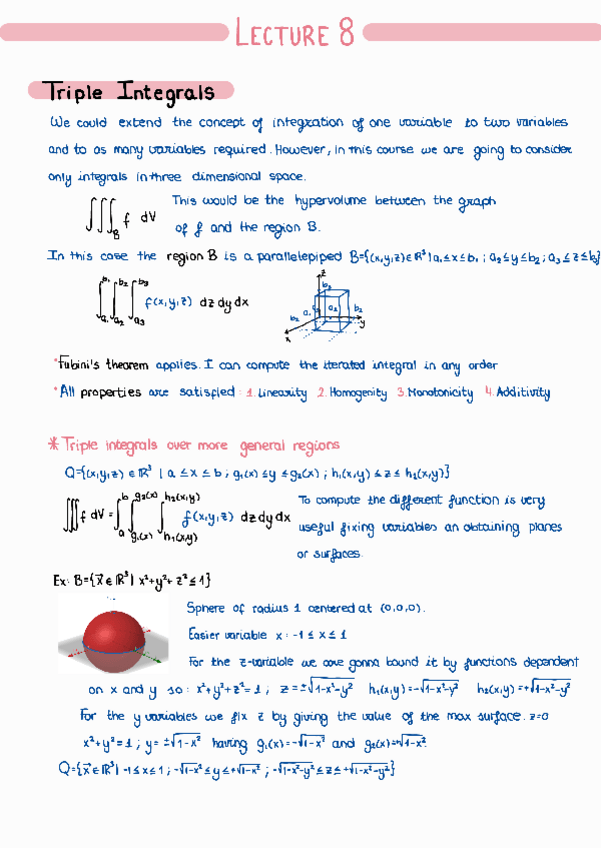 LECTURE 8
Triple Integrals
We could extend the concept of integration of one variable to two variables
and to as many variables required. However, in this course we are going to consider
only integrals in three dimensional space.
∭_B f dV
This would be the hypervolume between the graph
of f and the region B.
In this case the region B is a parallelepiped B={(x,y,z)∈ℝ³ | a₁≤x≤b₁ ; a₂≤y≤b₂ ; a₃≤z≤b₃}
∫_{a₁}^{b₁} ∫_{a₂}^{b₂} ∫_{a₃}^{b₃} f(x,y,z) dz dy dx
z
y
x
*Fubini's theorem applies. I can compute the iterated integral in any order
*All properties are satisfied: 1. Linearity 2. Homogenity 3. Monotonicity 4. Additivity
* Triple integrals over more general regions
Q={(x,y,z) ∈ ℝ³ | a ≤ x ≤ b ; g₁(x) ≤ y ≤ g₂(x) ; h₁(x,y) ≤ z ≤ h₂(x,y)}
∭ f dV = ∫_a^b ∫_{g₁(x)}^{g₂(x)} ∫_{h₁(x,y)}^{h₂(x,y)} f(x,y,z) dz dy dx
To compute the different function is very
useful fixing variables an obtaining planes
or surfaces.
Ex: B={x⃗ ∈ ℝ³ | x²+y²+z² ≤ 1}
Sphere of radius 1 centered at (0,0,0).
Easier variable x: -1 ≤ x ≤ 1
For the z-variable we are gonna bound it by functions dependent
on x and y so: x²+y²+z²=1 ; z=±√(1-x²-y²) h₁(x,y)=-√(1-x²-y²) h₂(x,y)=+√(1-x²-y²)
For the y variables we fix z by giving the value of the max surface. z=0
x²+y²=1 ; y=±√(1-x²) having g₁(x)=-√(1-x²) and g₂(x)=√(1-x²)
Q={x⃗ ∈ ℝ³ | -1≤x≤1 ; -√(1-x²) ≤ y ≤ +√(1-x²) ; -√(1-x²-y²) ≤ z ≤ +√(1-x²-y²)}